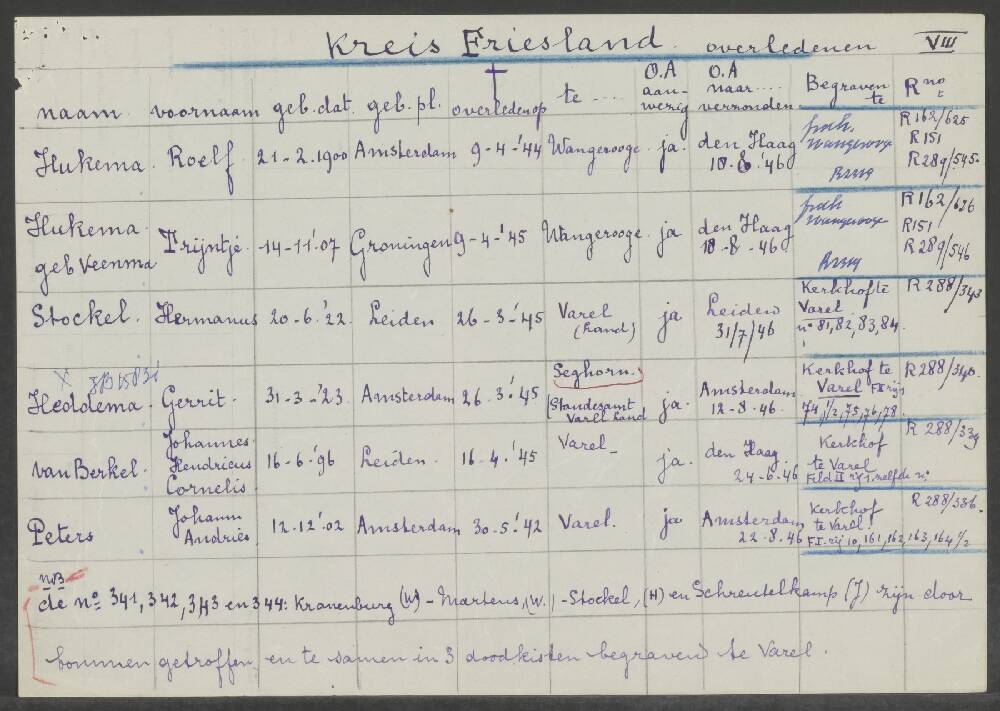 Kreis Friesland. overledenen VIII
naam. voornaam geb.dat. geb.pl. overleden op te .... O.A aanwezig O.A naar.... verzonden Begraven te R no
Hukema. Roelf 21-2.1900 Amsterdam 9-4-'44 Wangerooge ja. den Haag 10.8.'46 Wangerooge R162/625 R151 R289/545.
Hukema geb Veenma Trijntje 14-11'.07 Groningen 9-4-'45 Wangerooge ja den Haag 10-8-46 Wangerooge R162/626 R151 R289/546
Stockel. Hermanus 20-6.'22. Leiden 26-3-'45 Varel (Land) ja Leiden 31/7/46 Kerkhof te Varel no 81,82,83,84. R288/343
Heddema. Gerrit. 31-3-'23. Amsterdam 26.3.'45 Seghorn. (Standesamt Varel Land ja. Amsterdam 12-8-46. Kerkhof te Varel 74,1/2,75,76,78. R288/340.
van Berkel. Johannes. Hendricus Cornelis. 16-6-'96 Leiden. 16-4.'45 Varel- ja. den Haag. 24-6.46 Kerkhof te Varel Feld II rij 1, zelfde no. R 288/339
Peters Johann Andries. 12.12'.02 Amsterdam 30-5.'42 Varel. ja Amsterdam 22.8.46 Kerkhof te Varel. F.I. rij 10, 161, 162, 163, 164 1/2 R 288/336.
NB
de no 341, 342, 343 en 344: Kranenburg (W) - Martens, (W.) - Stockel, (H) en Schreutelkamp (J) zijn door
bommen getroffen en te samen in 3 doodkisten begraven te Varel.